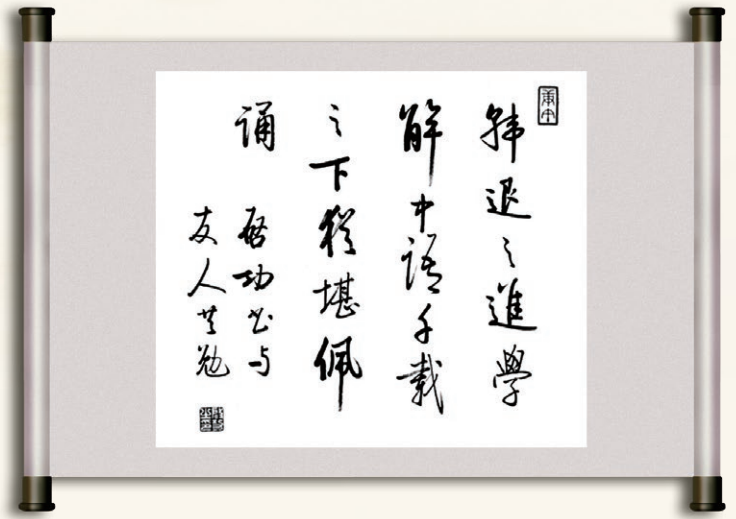 韩退之進學
解中語千載
之下猶堪佩
诵 啓功书与
友人共勉